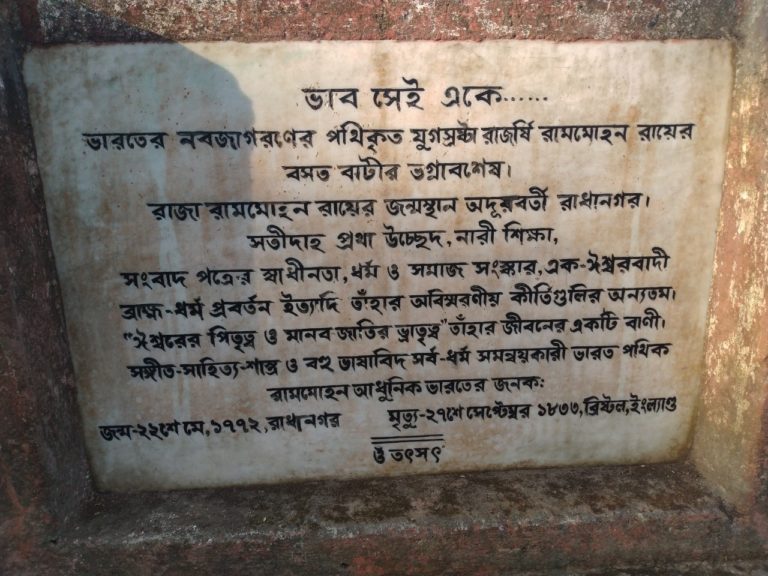 ভাব সেই একে......
ভারতের নবজাগরণের পথিকৃত যুগস্রষ্টা রাজর্ষি রামমোহন রায়ের
বসত বাটীর ভগ্নাবশেষ।
রাজা রামমোহন রায়ের জন্মস্থান অদূরবর্তী রাধানগর।
সতীদাহ প্রথা উচ্ছেদ, নারী শিক্ষা,
সংবাদ পত্রের স্বাধীনতা, ধর্ম ও সমাজ সংস্কার, এক-ঈশ্বরবাদী
ব্রাহ্ম-ধর্ম প্রবর্তন ইত্যাদি তাঁহার অবিস্মরণীয় কীর্তিগুলির অন্যতম।
"ঈশ্বরের পিতৃত্ব ও মানব জাতির ভ্রাতৃত্ব" তাঁহার জীবনের একটি বাণী।
সঙ্গীত-সাহিত্য-শাস্ত্র ও বহু ভাষাবিদ সর্ব-ধর্ম সমন্বয়কারী ভারত পথিক
রামমোহন আধুনিক ভারতের জনকঃ
জন্ম-২২শে মে, ১৭৭২, রাধানগর মৃত্যু-২৭শে সেপ্টেম্বর ১৮৩৩, ব্রিষ্টল, ইংল্যাণ্ড
ওঁ তৎসৎ